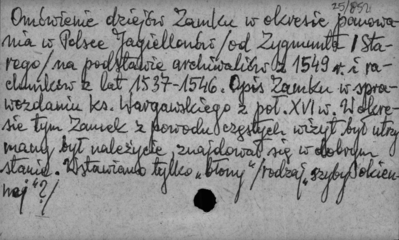 25/852
Omówienie dziejów Zamku w okresie panowa-
nia w Polsce Jagiellonów /od Zygmunta I Sta-
rego/ na podstawie archiwaliów z 1549 r. i ra-
chunków z lat 1537-1546. Opis Zamku w spra-
wozdaniu ks. Wargawskiego z poł. XVI w. W okre-
sie tym Zamek z powodu częstych wizyt był utrzy
many był należycie, znajdował się w dobrym
stanie. Wstawiano tylko „błony" /rodzaj szyby okien-
nej"?/